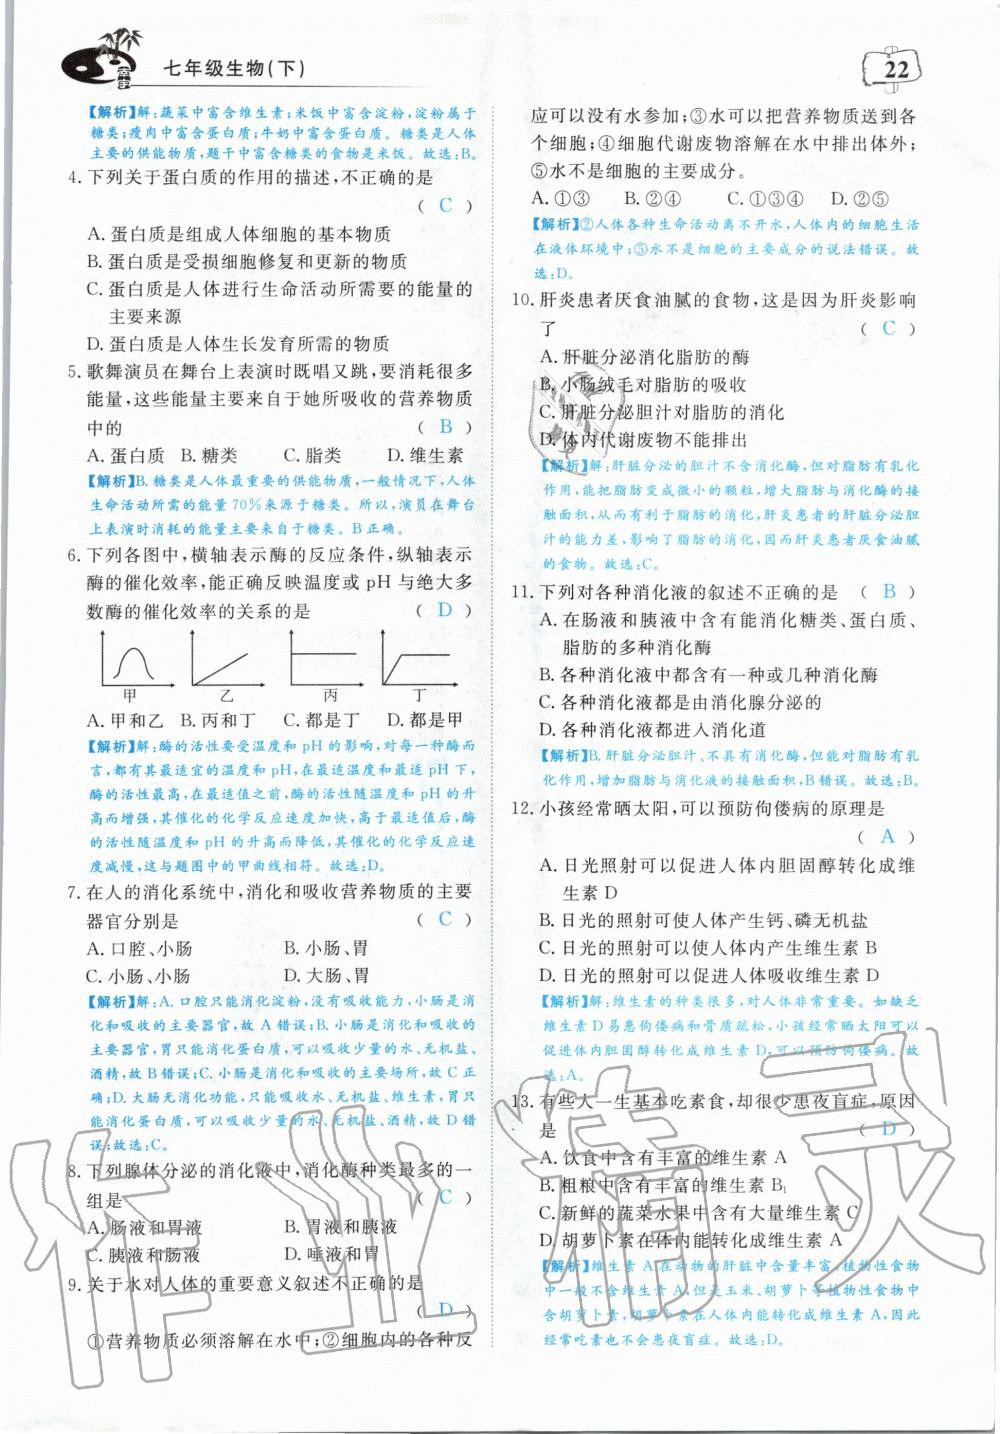 七年级生物(下)
22
【解析】解:蔬菜中富含维生素;米饭中富含淀粉,淀粉属于
糖类;瘦肉中富含蛋白质;牛奶中富含蛋白质。糖类是人体
主要的供能物质,题干中富含糖类的食物是米饭。故选:B。
4. 下列关于蛋白质的作用的描述,不正确的是
( C )
A. 蛋白质是组成人体细胞的基本物质
B. 蛋白质是受损细胞修复和更新的物质
C. 蛋白质是人体进行生命活动所需要的能量的
主要来源
D. 蛋白质是人体生长发育所需的物质
5. 歌舞演员在舞台上表演时既唱又跳,要消耗很多
能量,这些能量主要来自于她所吸收的营养物质
中的 ( B )
A. 蛋白质 B. 糖类 C. 脂类 D. 维生素
【解析】B. 糖类是人体最重要的供能物质,一般情况下,人体
生命活动所需的能量 70%来源于糖类。所以,演员在舞台
上表演时消耗的能量主要来自于糖类。B 正确。
6. 下列各图中,横轴表示酶的反应条件,纵轴表示
酶的催化效率,能正确反映温度或 pH 与绝大多
数酶的催化效率的关系的是 ( D )
甲 乙 丙 丁
A. 甲和乙 B. 丙和丁 C. 都是丁 D. 都是甲
【解析】解:酶的活性要受温度和 pH 的影响,对每一种酶而
言,都有其最适宜的温度和 pH,在最适温度和最适 pH 下,
酶的活性最高,在最适值之前,酶的活性随温度和 pH 的升
高而增强,其催化的化学反应速度加快,高于最适值后,酶
的活性随温度和 pH 的升高而降低,其催化的化学反应速
度减慢,这与题图中的甲曲线相符。故选:D。
7. 在人的消化系统中,消化和吸收营养物质的主要
器官分别是 ( C )
A. 口腔、小肠 B. 小肠、胃
C. 小肠、小肠 D. 大肠、胃
【解析】解:A. 口腔只能消化淀粉,没有吸收能力,小肠是消
化和吸收的主要器官,故 A 错误;B. 小肠是消化和吸收的
主要器官,胃只能消化蛋白质,可以吸收少量的水、无机盐、
酒精,故 B 错误;C. 小肠是消化和吸收的主要场所,故 C 正
确;D. 大肠无消化功能,只能吸收水、无机盐、维生素,胃只
能消化蛋白质,可以吸收少量的水、无机盐、酒精,故 D 错
误;故选:C。
8. 下列腺体分泌的消化液中,消化酶种类最多的一
组是 ( C )
A. 肠液和胃液 B. 胃液和胰液
C. 胰液和肠液 D. 唾液和胃液
9. 关于水对人体的重要意义叙述不正确的是
( D )
①营养物质必须溶解在水中;②细胞内的各种反
应可以没有水参加;③水可以把营养物质送到各
个细胞;④细胞代谢废物溶解在水中排出体外;
⑤水不是细胞的主要成分。
A. ①③ B. ②④ C. ①③④ D. ②⑤
【解析】②人体各种生命活动离不开水,人体内的细胞生活
在液体环境中;⑤水不是细胞的主要成分的说法错误。故
选:D。
10. 肝炎患者厌食油腻的食物,这是因为肝炎影响
了 ( C )
A. 肝脏分泌消化脂肪的酶
B. 小肠绒毛对脂肪的吸收
C. 肝脏分泌胆汁对脂肪的消化
D. 体内代谢废物不能排出
【解析】解:肝脏分泌的胆汁不含消化酶,但对脂肪有乳化
作用,能把脂肪变成微小的颗粒,增大脂肪与消化酶的接
触面积,从而有利于脂肪的消化,肝炎患者的肝脏分泌胆
汁的能力差,影响了脂肪的消化,因此,肝炎患者厌食油腻
的食物。故选:C。
11. 下列对各种消化液的叙述不正确的是 ( B )
A. 在肠液和胰液中含有能消化糖类、蛋白质、
脂肪的多种消化酶
B. 各种消化液中都含有一种或几种消化酶
C. 各种消化液都是由消化腺分泌的
D. 各种消化液都进入消化道
【解析】B. 肝脏分泌胆汁、不具有消化酶,但能对脂肪有乳
化作用,增加脂肪与消化液的接触面积,B 错误。故选:B。
12. 小孩经常晒太阳,可以预防佝偻病的原理是
( A )
A. 日光照射可以促进人体内胆固醇转化成维
生素 D
B. 日光的照射可使人体产生钙、磷无机盐
C. 日光的照射可以使人体内产生维生素 B
D. 日光的照射可以使人体吸收维生素 D
【解析】解:维生素的种类很多,对人体非常重要。如缺乏
维生素 D 易患佝偻病和骨质疏松,小孩经常晒太阳可以
促进体内胆固醇转化成维生素 D,可以预防佝偻病。故
选:A。
13. 有些人一生基本吃素食,却很少患夜盲症,原因
是 ( D )
A. 饮食中含有丰富的维生素 A
B. 粗粮中含有丰富的维生素 B₁
C. 新鲜的蔬菜水果中含有大量维生素 C
D. 胡萝卜素在体内能转化成维生素 A
【解析】维生素 A 在动物的肝脏中含量丰富,植物性食物
中一般不含维生素 A,但是玉米、胡萝卜等植物性食物中
含胡萝卜素,胡萝卜素在人体内能转化成维生素 A,因此
经常吃素也不会患夜盲症。故选:D。
作业精灵